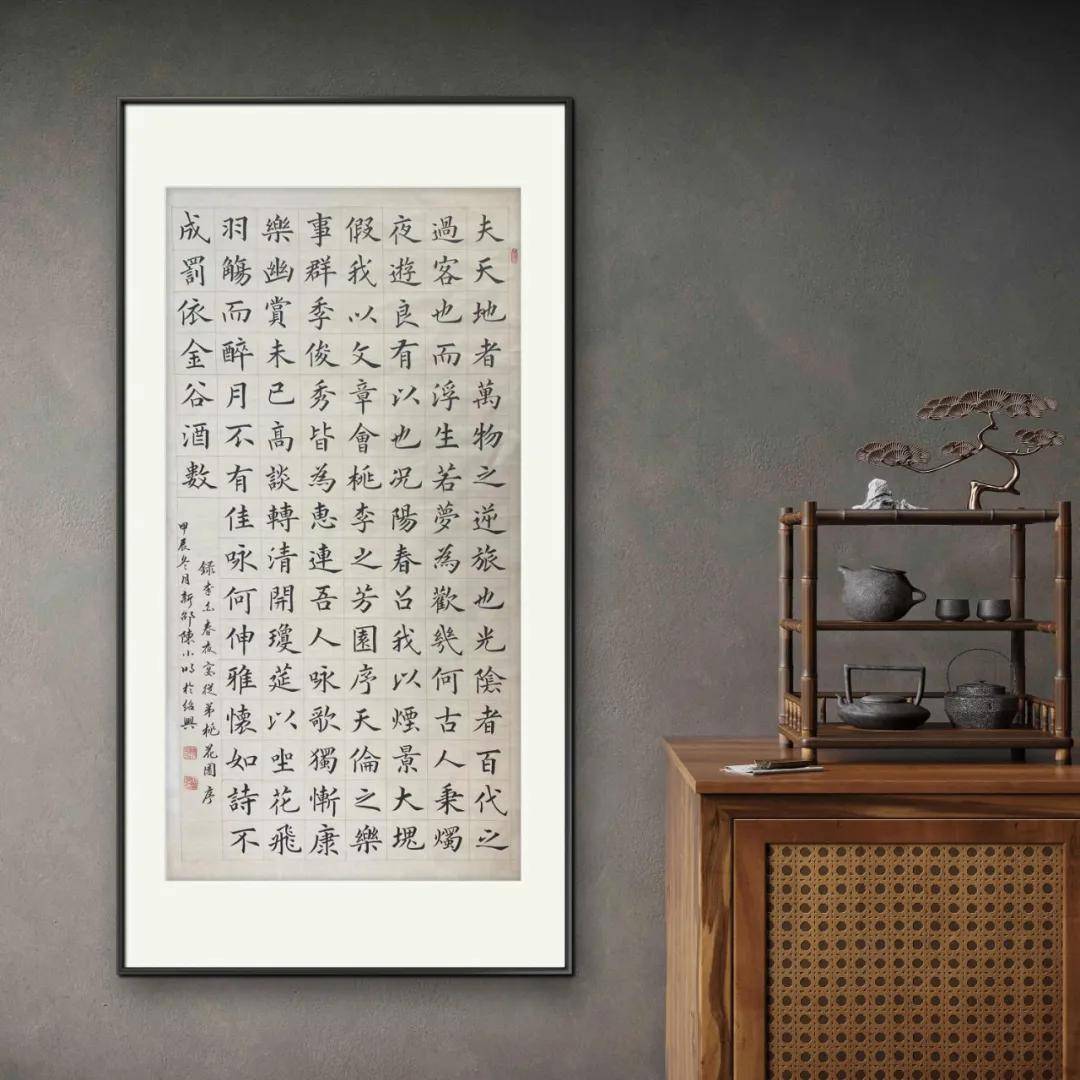 夫天地者萬物之逆旅也光陰者百代之
過客也而浮生若夢為歡幾何古人秉燭
夜遊良有以也况陽春召我以煙景大塊
假我以文章會桃李之芳園序天倫之樂
事群季俊秀皆為惠連吾人咏歌獨慚康
樂幽賞未已高談轉清開瓊筵以坐花飛
羽觴而醉月不有佳咏何伸雅懷如詩不
成罰依金谷酒數
錄李白春夜宴從弟桃花園序
甲辰冬月新邵陳小於紹興